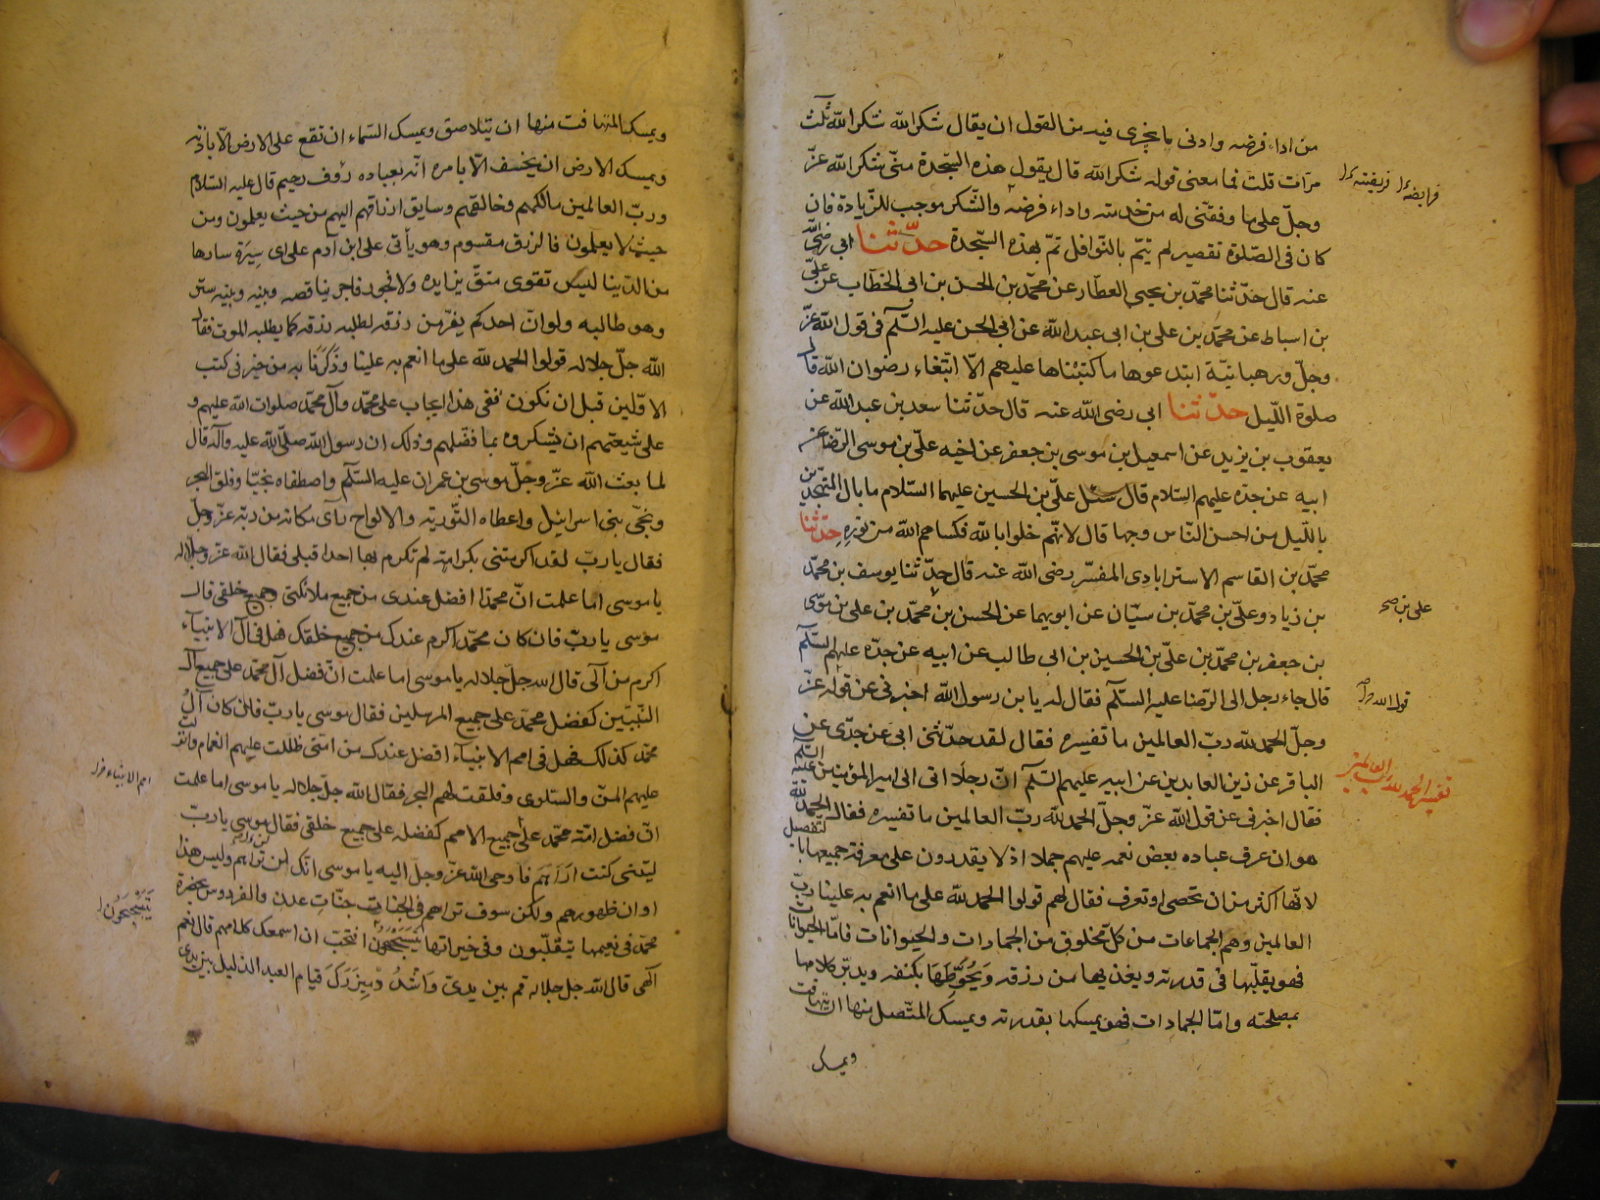 من اداء فرضه وادنى ما يجزى فيه من القول ان يقال شكرا لله شكرا لله ثلث
مرات قلت فما معنى قوله شكرا لله قال يقول هذه السجدة منّى شكرا لله عزّ
وجلّ على ما وفقنى له من خدمته واداء فرضه والشكر موجب للزيادة فان
كان فى الصلوة تقصير لم يتمّ بالنوافل تمّ بهذه السجدة حدّثنا ابى رضى الله
عنه قال حدّثنا محمّد بن يحيى العطار عن محمّد بن الحسن بن ابى الخطاب عن علىّ
بن اسباط عن محمّد بن على بن ابى عبد الله عن ابى الحسن عليه السّلم فى قول الله عزّ
وجلّ ورهبانيّة ابتدعوها ما كتبناها عليهم الّا ابتغاء رضوان الله قال
صلوة اللّيل حدّثنا ابى رضى الله عنه قال حدّثنا سعد بن عبد الله عن
يعقوب بن يزيد عن اسمعيل بن موسى بن جعفر عن اخيه علىّ بن موسى الرّضا عن
ابيه عن جدّه عليهم السّلام قال سئل علىّ بن الحسين عليهما السّلام ما بال المتهجّدين
باللّيل من احسن النّاس وجها قال لانّهم خلوا بالله فكساهم الله من نوره حدّثنا
محمّد بن القاسم الاسترابادى المفسّر رضى الله عنه قال حدّثنا يوسف بن محمّد
بن زياد وعلىّ بن محمّد بن سيّان عن ابويهما عن الحسن بن محمّد بن على بن موسى
بن جعفر بن محمّد بن علىّ بن الحسين بن ابى طالب عن ابيه عن جدّه عليهم السّلم
قال جاء رجل الى الرّضا عليه السّلم فقال له يا بن رسول الله اخبرنى عن قوله عزّ
وجلّ الحمد لله ربّ العالمين ما تفسيره فقال لقد حدّثنى ابى عن جدّى عن
الباقر عن زين العابدين عن ابيه عليهم السّلم انّ رجلا اتى الى امير المؤمنين عليه السّلم
فقال اخبرنى عن قول الله عزّ وجلّ الحمد لله ربّ العالمين ما تفسيره فقال الحمد لله
هو ان عرف عباده بعض نعمه عليهم جملا اذ لا يقدرون على معرفة جميعها بالتفصيل
لانّها اكثر من ان تحصى او تعرف فقال لهم قولوا الحمد لله على ما انعم به علينا ربّ
العالمين وهم الجماعات من كل مخلوق من الجمادات والحيوانات فامّا الحيوانات
فهو يقلّبها فى قدرته ويغذيها من رزقه ويحوّطها بكنفه ويدبّر كلا منها
بمصلحته وامّا الجمادات فهو يمسكها بقدرته ويمسك المتّصل منها ان يتهافت
ويمسك
علىّ بن صح
قول الله
تفسير الحمد لله رب العالمين
ويمسك المتهافت منها ان يتلاصق ويمسك السّماء ان تقع على الارض الّا باذنه
ويمسك الارض ان ينخسف الّا بامره انّه بعباده رؤف رحيم قال عليه السّلام
وربّ العالمين مالكهم وخالقهم وسايق ارزاقهم اليهم من حيث يعلمون ومن
حيث لا يعلمون فالرزق مقسوم وهو يأتى على ابن آدم على اى سيرة سارها
من الدّنيا ليس تقوى متّق بزايده ولا فجور فاجر بناقصه وبينه وبينه ستر
وهو طالبه ولو انّ احدكم يفرّ من رزقه لطلبه رزقه كما يطلبه الموت فقال
الله جلّ جلاله قولوا الحمد لله على ما انعم به علينا وذكرنا به من خير فى كتب
الاوّلين قبل ان نكون ففى هذا ايجاب على محمّد وآل محمّد صلوات الله عليهم و
على شيعتهم ان يشكروه بما فضّلهم وذلك ان رسول الله صلّى الله عليه وآله قال
لما بعث الله عزّ وجلّ موسى بن عمران عليه السّلم واصطفاه نجيّا وفلق البحر
ونجّى بنى اسرائيل واعطاه التّورية والالواح رأى مكانه من ربّه عزّ وجلّ
فقال يا ربّ لقد اكرمتنى بكرامة لم تكرم بها احدا قبلى فقال الله عزّ وجلّ جلاله
يا موسى اما علمت انّ محمّدا افضل عندى من جميع ملائكتى وجميع خلقى قال
موسى يا ربّ فان كان محمّد اكرم عندك من جميع خلقك فهل فى آل الانبياء
اكرم من آلى قال الله جلّ جلاله يا موسى اما علمت انّ فضل آل محمّد على جميع آل
النّبيّين كفضل محمّد على جميع المرسلين فقال موسى يا ربّ فان كان آل
محمّد كذلك فهل فى امم الانبياء افضل عندك من امّتى ظللت عليهم الغمام وانزلت
عليهم المنّ والسّلوى وفلقت لهم البحر فقال الله جلّ جلاله يا موسى اما علمت
انّ فضل امّة محمّد على جميع الامم كفضله على جميع خلقى فقال موسى يا ربّ
ليتنى كنت اراهم فاوحى الله عزّ وجلّ اليه يا موسى انّك لن تراهم وليس هذا
اوان ظهورهم ولكن سوف تراهم فى الجنات جنّات عدن والفردوس بحضرة
محمّد فى نعيمها يتقلّبون وفى خيراتها يتبجّحون افتحبّ ان اسمعك كلامهم قال نعم
الهى قال الله جل جلاله قم بين يدىّ واشدد ميزرك قيام العبد الذليل بين يدى
يتبجّحون